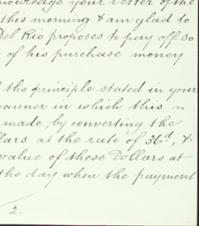 nowledge your letter of the
this morning & am glad to
Del Rio proposes to pay off so
of his purchase money
the principle stated in your
manner in which this
made, by converting the
llars at the rate of 36d, &
value of these Dollars at
the day when the payment
2.